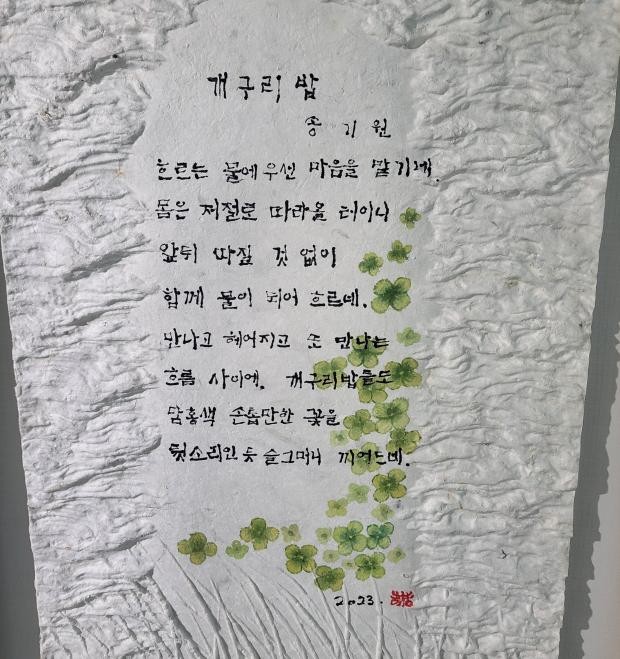 개구리 밥
송 기 원
흐르는 물에 우선 마음을 맡기게.
몸은 저절로 따라올 터이니
앞뒤 따질 것 없이
함께 물이 되어 흐르네.
만나고 헤어지고 또 만나는
흐름 사이에. 개구리밥들도
담홍색 손톱만한 꽃을
뒷소리인 듯 슬그머니 끼어드네.
2023.